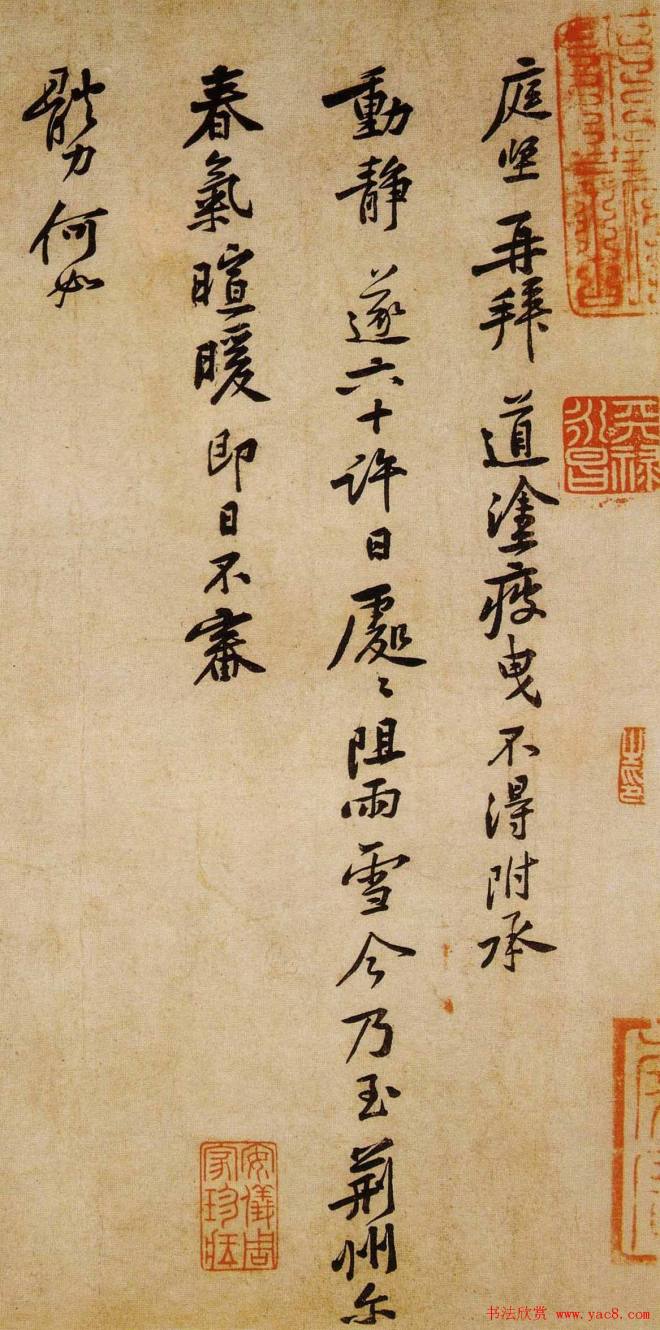 庭堅再拜道塗疲曳不得附承
動靜遂六十許日處〻阻雨雪今乃至荊州尔
春氣暄暖即日不審
體力何如
天祿
永昌
安儀周
家珍藏
书法欣赏 www.yac8.com